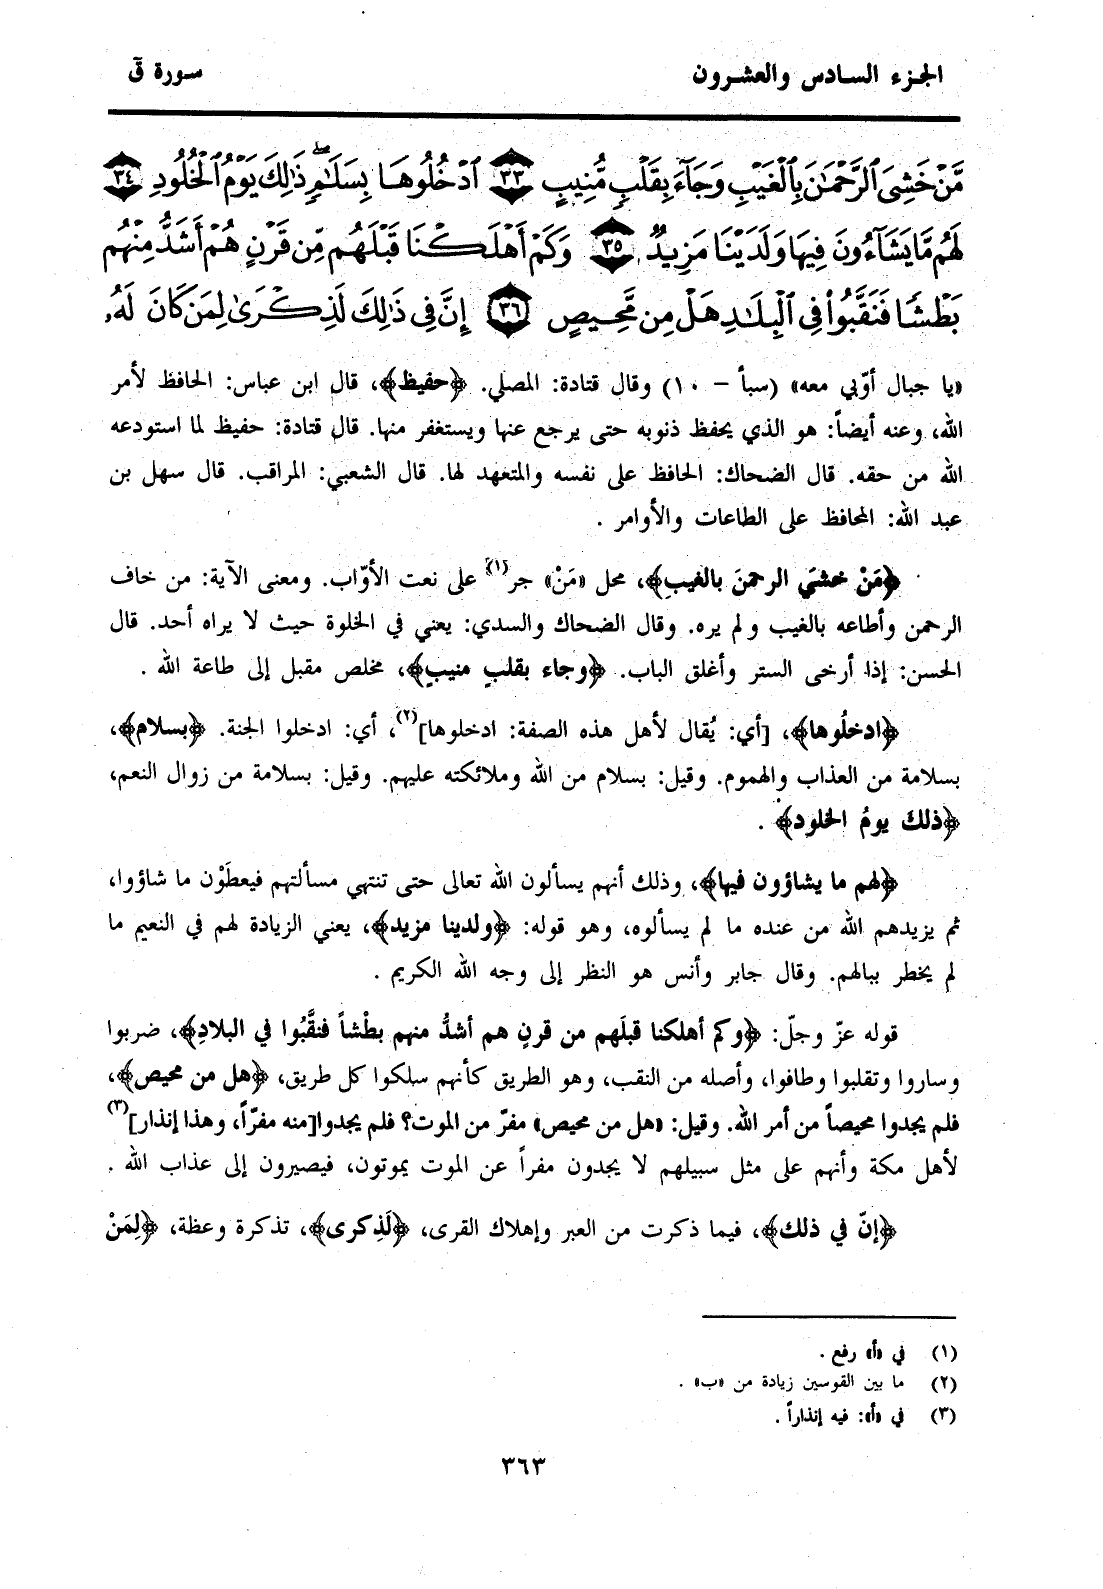 الجزء السادس والعشرون
سورة ق
مَّنْ خَشِىَ ٱلرَّحْمَٰنَ بِٱلْغَيْبِ وَجَآءَ بِقَلْبٍ مُّنِيبٍ ٣٣ ٱدْخُلُوهَا بِسَلَٰمٍ ۖ ذَٰلِكَ يَوْمُ ٱلْخُلُودِ ٣٤
لَهُم مَّا يَشَآءُونَ فِيهَا وَلَدَيْنَا مَزِيدٌ ٣٥ وَكَمْ أَهْلَكْنَا قَبْلَهُم مِّن قَرْنٍ هُمْ أَشَدُّ مِنْهُم
بَطْشًا فَنَقَّبُوا۟ فِى ٱلْبِلَٰدِ هَلْ مِن مَّحِيصٍ ٣٦ إِنَّ فِى ذَٰلِكَ لَذِكْرَىٰ لِمَن كَانَ لَهُۥ
«يا جبال أوّبي معه» (سبأ - ١٠) وقال قتادة: المصلي. ﴿حفيظ﴾، قال ابن عباس: الحافظ لأمر
الله، وعنه أيضاً: هو الذي يحفظ ذنوبه حتى يرجع عنها ويستغفر منها. قال قتادة: حفيظ لما استودعه
الله من حقه. قال الضحاك: الحافظ على نفسه والمتعهد لها. قال الشعبي: المراقب. قال سهل بن
عبد الله: المحافظ على الطاعات والأوامر .
﴿مَنْ خشيَ الرحمنَ بالغيبِ﴾، محل «مَنْ» جر(١) على نعت الأوّاب. ومعنى الآية: من خاف
الرحمن وأطاعه بالغيب ولم يره. وقال الضحاك والسدي: يعني في الخلوة حيث لا يراه أحد. قال
الحسن: إذا أرخى الستر وأغلق الباب. ﴿وجاء بقلبٍ منيبٍ﴾، مخلص مقبل إلى طاعة الله .
﴿ادخلُوها﴾، [أي: يُقال لأهل هذه الصفة: ادخلوها](٢)، أي: ادخلوا الجنة. ﴿بسلام﴾،
بسلامة من العذاب والهموم. وقيل: بسلام من الله وملائكته عليهم. وقيل: بسلامة من زوال النعم،
﴿ذلكَ يومُ الخلود﴾ .
﴿لهم ما يشاؤون فيها﴾، وذلك أنهم يسألون الله تعالى حتى تنتهي مسألتهم فيعطَوْن ما شاؤوا،
ثم يزيدهم الله من عنده ما لم يسألوه، وهو قوله: ﴿ولدينا مزيد﴾، يعني الزيادة لهم في النعيم ما
لم يخطر ببالهم. وقال جابر وأنس هو النظر إلى وجه الله الكريم .
قوله عزّ وجلّ: ﴿وكم أهلكنا قبلَهم من قرنٍ هم أشدُّ منهم بطْشاً فنقَّبُوا في البلادِ﴾، ضربوا
وساروا وتقلبوا وطافوا، وأصله من النقب، وهو الطريق كأنهم سلكوا كل طريق، ﴿هل من محيص﴾،
فلم يجدوا محيصاً من أمر الله. وقيل: «هل من محيص» مفرّ من الموت؟ فلم يجدوا[منه مفرّاً، وهذا إنذار](٣)
لأهل مكة وأنهم على مثل سبيلهم لا يجدون مفراً عن الموت يموتون، فيصيرون إلى عذاب الله .
﴿إنّ في ذلك﴾، فيما ذكرت من العبر وإهلاك القرى، ﴿لَذِكرى﴾، تذكرة وعظة، ﴿لِمَنْ
(١) في «أ» رفع .
(٢) ما بين القوسين زيادة من «ب» .
(٣) في «أ»: فيه إنذاراً .
٣٦٣